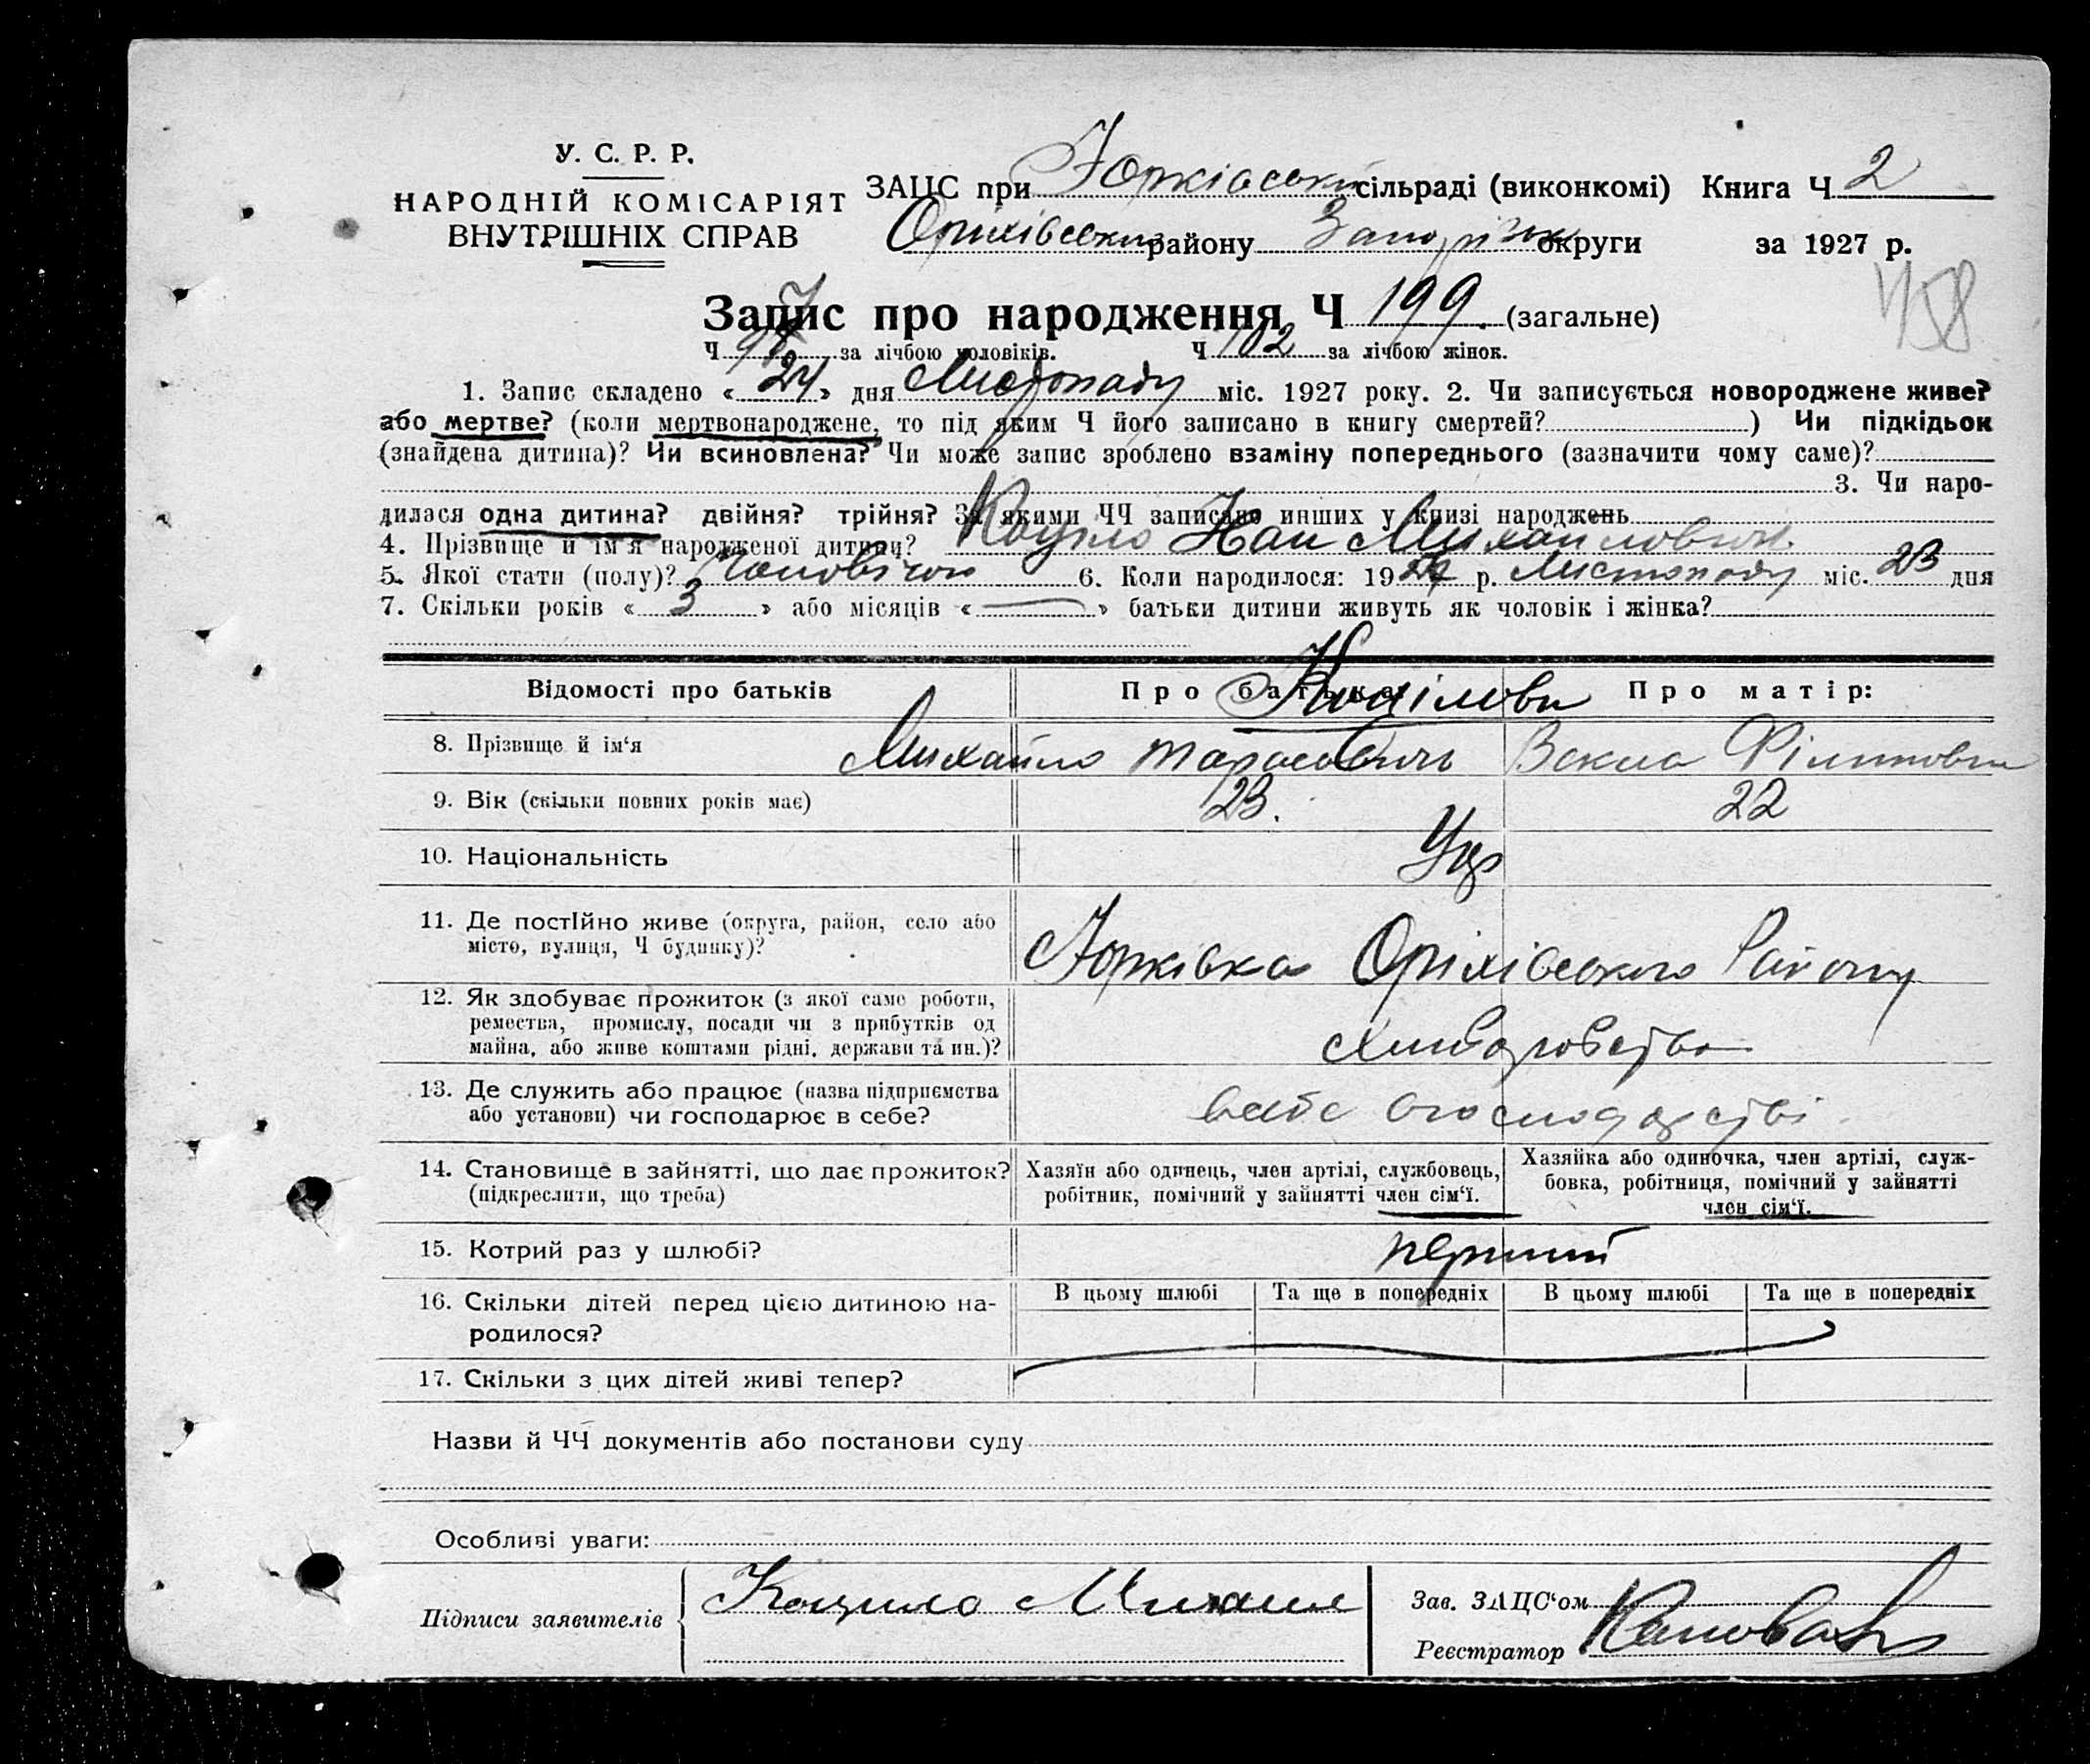 У. С. Р. Р.
НАРОДНІЙ КОМІСАРІЯТ
ВНУТРІШНІХ СПРАВ
ЗАЦС при Юрківській сільраді (виконкомі) Книга Ч 2
Оріхівського району Запорізьк округи за 1927 р.
458
Запис про народження Ч 199. (загальне)
Ч 97 за лічбою чоловіків. Ч 102 за лічбою жінок.
1. Запис складено « 24 » дня Листопаду міс. 1927 року. 2. Чи записується новороджене живе?
або мертве? (коли мертвонароджене, то під яким Ч його записано в книгу смертей? ) Чи підкідьок
(знайдена дитина)? Чи всиновлена? Чи може запис зроблено взаміну попереднього (зазначити чому саме)?
3. Чи наро-
дилася одна дитина? двійня? трійня? За якими ЧЧ записано инших у книзі народжень
4. Прізвище й ім'я народженої дитини? Коцило Михайлович
5. Якої стати (полу)? Чоловічої 6. Коли народилося: 1927 р. Листопаду міс. 23 дня
7. Скільки років « 3 » або місяців « — » батьки дитини живуть як чоловік і жінка?
Відомості про батьків Про батька: Про матір:
Коцілови
8. Прізвище й ім'я Михайло Тарасович Векла Філиповна
9. Вік (скільки повних років має) 23. 22
10. Національність Укр
11. Де постІйно живе (округа, район, село або
місто, вулиця, Ч будинку)? Юрківка Оріхівського Району
12. Як здобуває прожиток (з якої саме роботи,
ремества, промислу, посади чи з прибутків од
майна, або живе коштами рідні, держави та ин.)? хліборобство
13. Де служить або працює (назва підприємства
або установи) чи господарює в себе? в себе в господарстві
14. Становище в зайнятті, що дає прожиток?
(підкреслити, що треба)
Хазяїн або одинець, член артілі, службовець,
робітник, помічний у зайнятті член сім'ї.
Хазяйка або одиночка, член артілі, служ-
бовка, робітниця, помічний у зайнятті
член сім'ї.
15. Котрий раз у шлюбі? перший
16. Скільки дітей перед цією дитиною на-
родилося?
В цьому шлюбі Та ще в попередніх В цьому шлюбі Та ще в попередніх
17. Скільки з цих дітей живі тепер?
Назви й ЧЧ документів або постанови суду
Особливі уваги:
Підписи заявителів Коцило Михаил
Зав. ЗАЦС'ом
Реєстратор